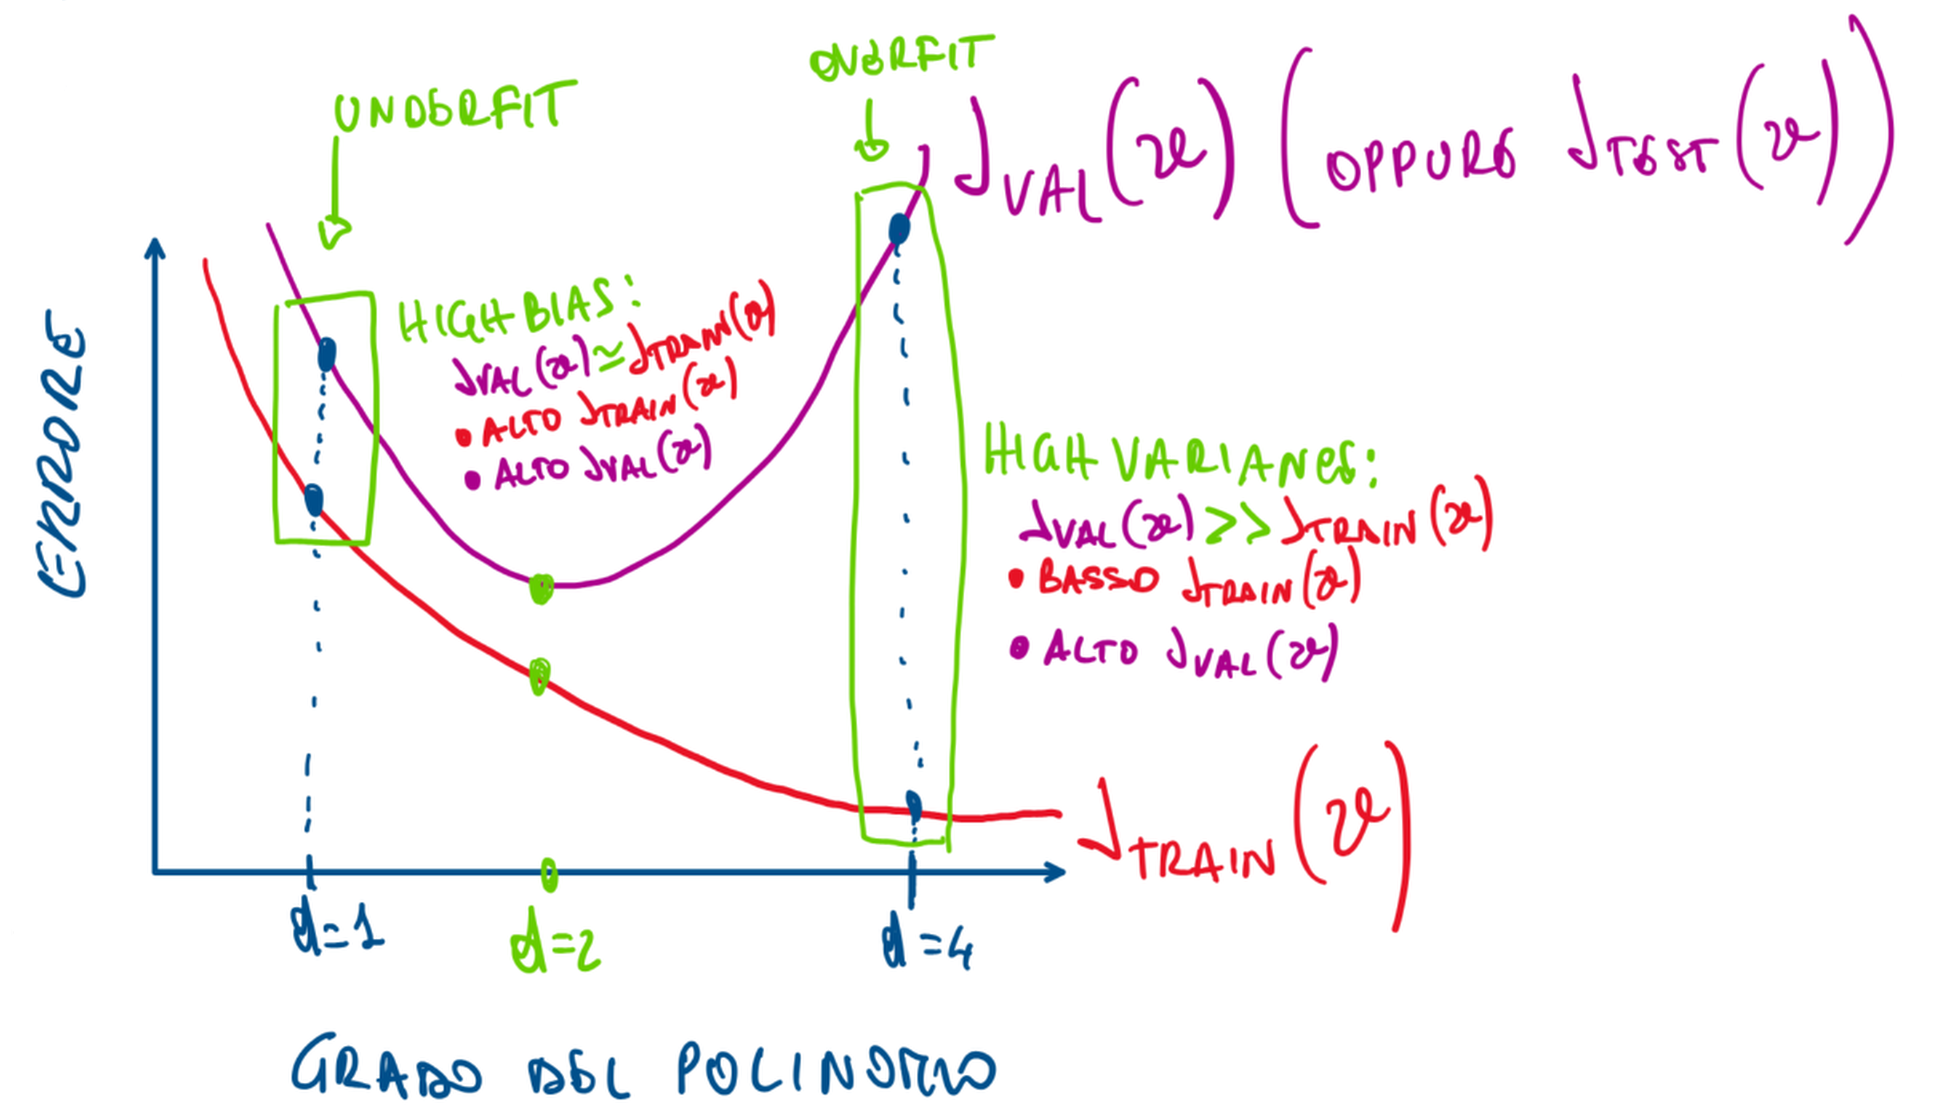 OVERFIT
UNDERFIT
J VAL (ϑ) (OPPURE J TEST (ϑ))
HIGH BIAS:
J VAL (ϑ) ≃ J TRAIN (ϑ)
• ALTO J TRAIN (ϑ)
• ALTO J VAL (ϑ)
ERRORE
HIGH VARIANCE:
J VAL (ϑ) >> J TRAIN (ϑ)
• BASSO J TRAIN (ϑ)
• ALTO J VAL (ϑ)
J TRAIN (ϑ)
d=1
d=2
d=4
GRADO DEL POLINOMIO